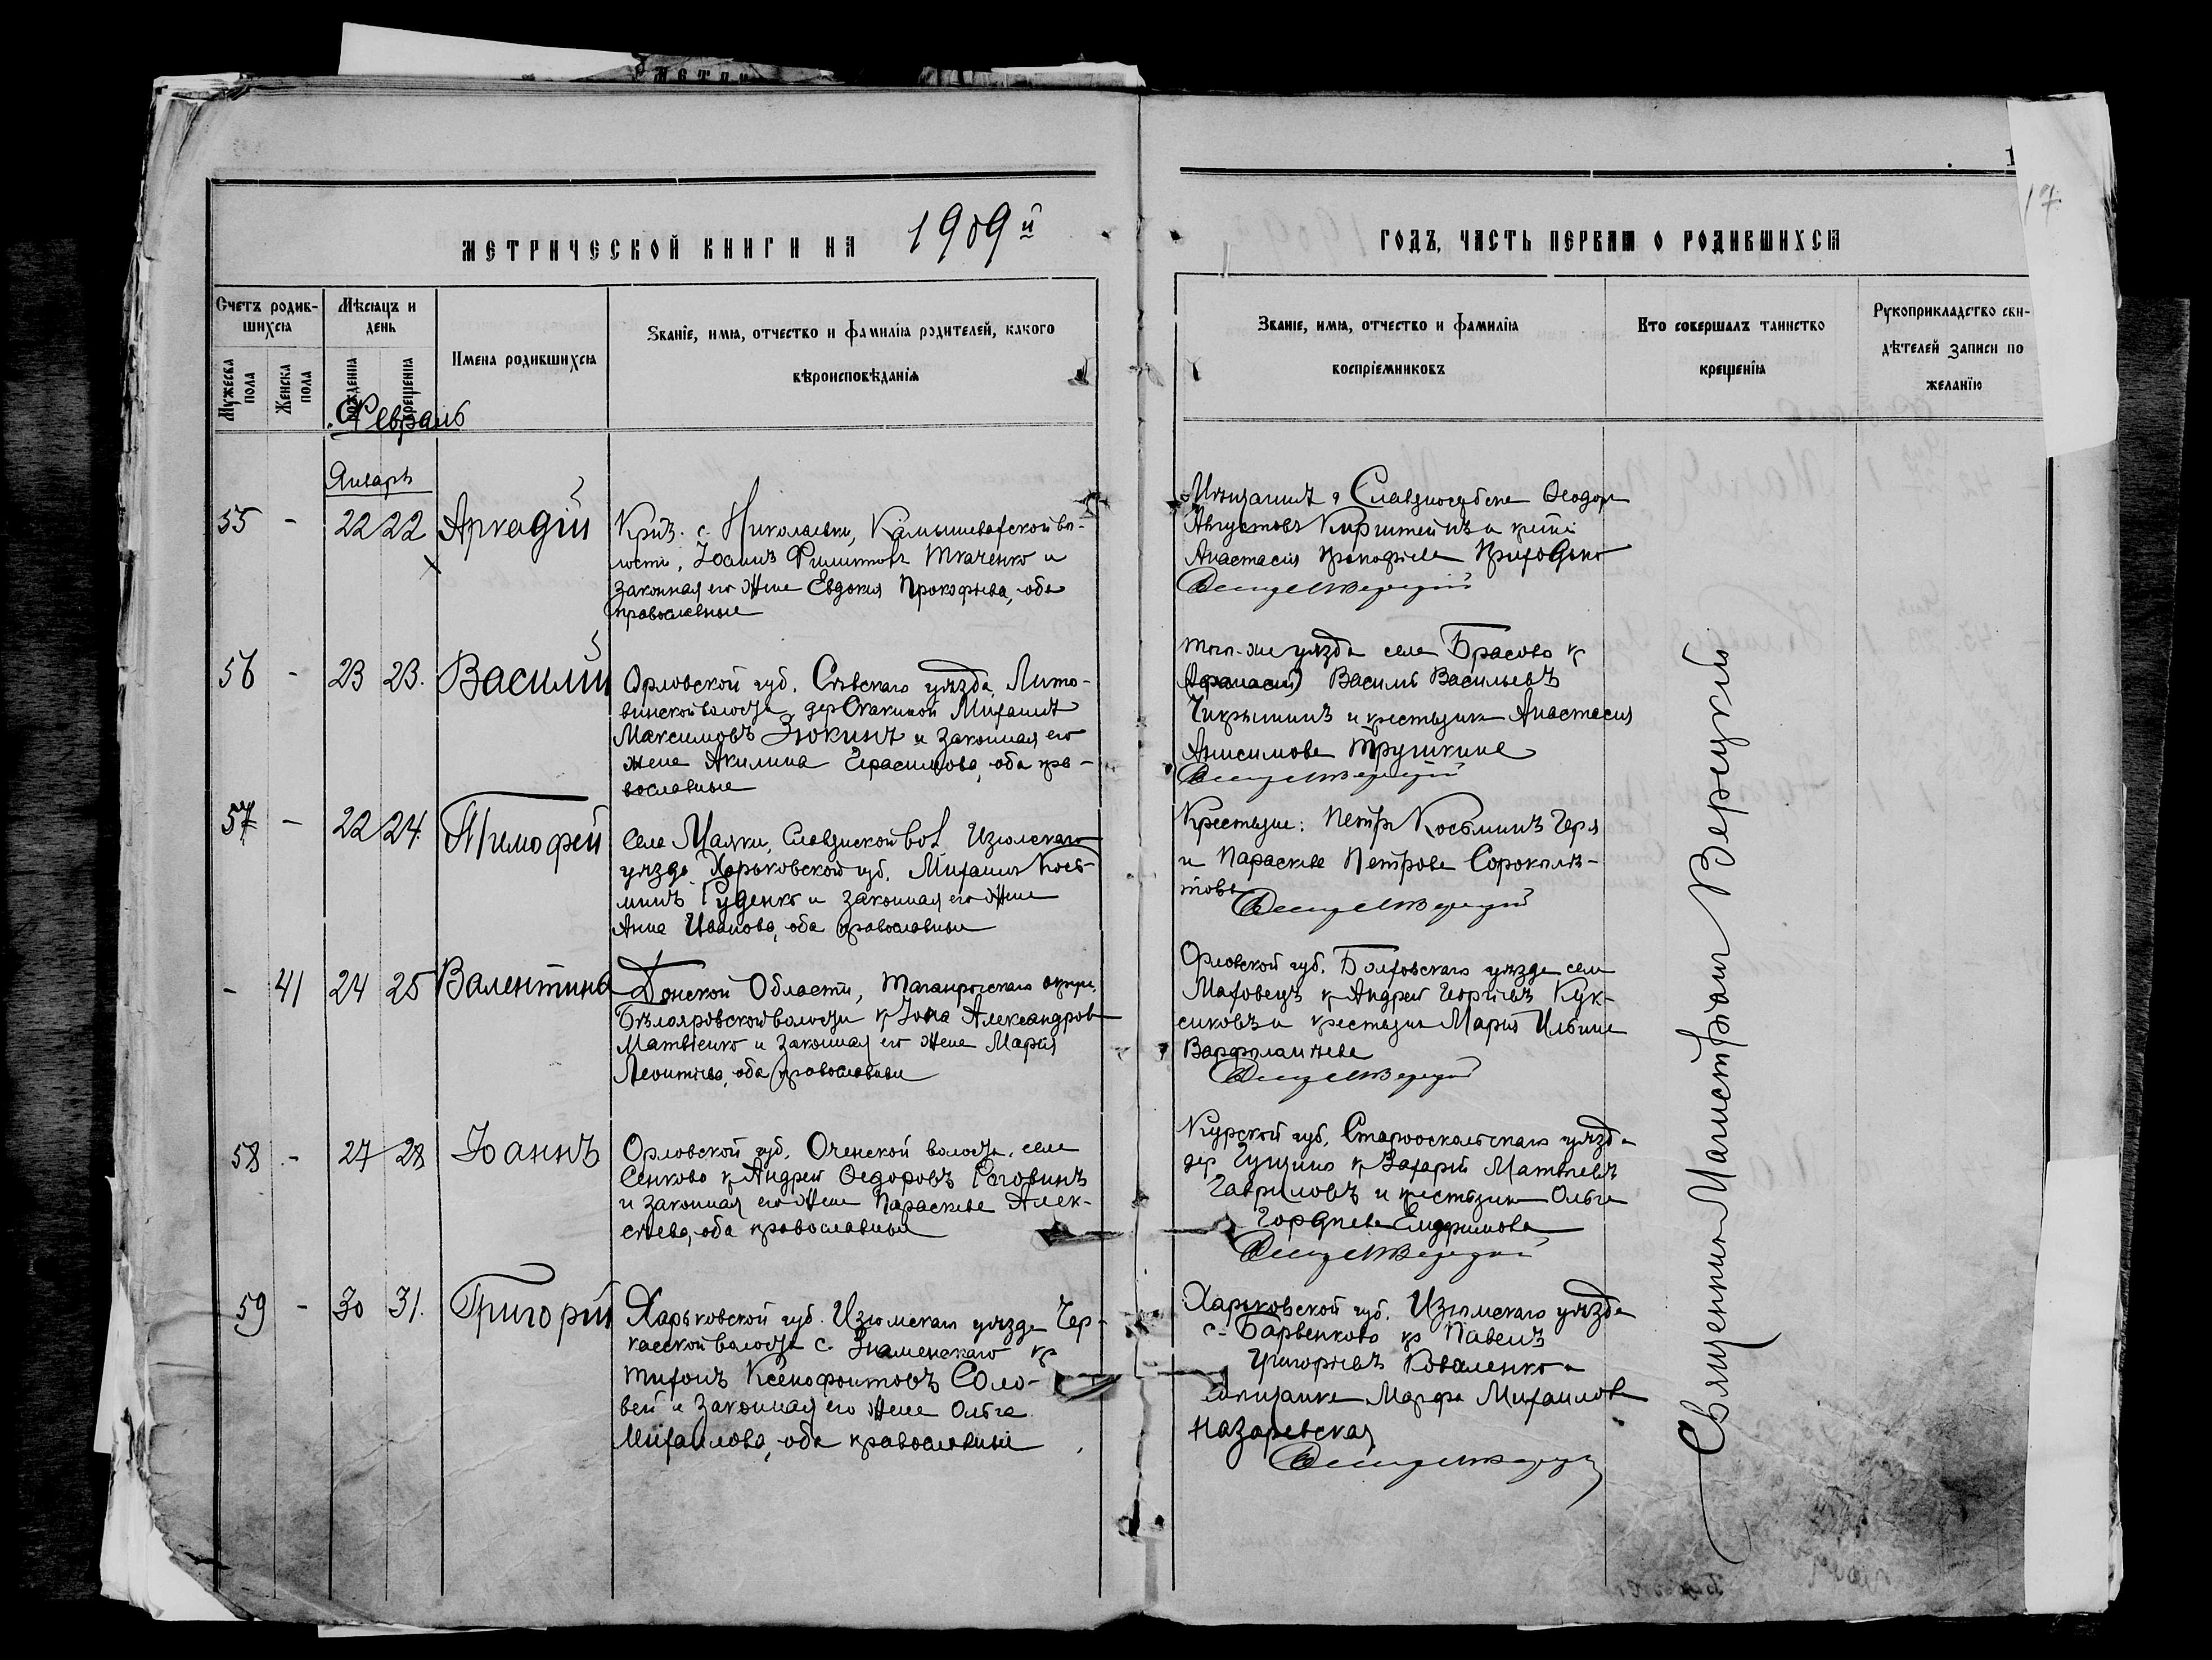 МЕТРИЧЕСКОЙ КНИГИ НА 1909й
ГОДЪ, ЧАСТЬ ПЕРВАЯ О РОДИВШИХСЯ
17
Счетъ родив-
шихся
Мужеска пола
Женска пола
Мѣсяцъ и
день
рожденія
крещенія
Имена родившихся
Званіе, имя, отчество и фамилія родителей, какого
вѣроисповѣданія
Званіе, имя, отчество и фамилія
воспріемниковъ
Кто совершалъ таинство
крещенія
Рукоприкладство сви-
дѣтелей записи по
желанію
Февраль
Январь
55 - 22 22 Аркадій
Николаевки, Камышевахской во-
лости, Іоаннъ Филиптовъ Ткаченко и
законная его жена Евдокия Прокофьева, оба
православные
Мѣщанинъ Славяносербска Ѳеодоръ
Августовъ
Анастасія Прокофьева Приходько
56 - 23 23. Василій
Орловской губ. Сѣвскаго уѣзда, Лито-
винской волости, дер. Михаилъ
Максимовъ Зюкинъ и законная его
жена Акилина Герасимова, оба пра-
вославные
того-же уѣзда села Брасово кр
(Афанасий) Василій Васильевъ
Чикрыжинъ и крестьянка Анастасия
Анисимова Трушкина
57 - 22 24. Тимофей
Села Маяки, Славянской вол. Изюмскаго
уѣзда Харьковской губ. Михаилъ Кось-
минъ Руденко и законная его жена
Анна Иванова, оба православные
Крестьяне: Петръ Косьминъ Геря
и Параскева Петрова Сороколѣ-
това
- 41 24 25 Валентина
Донской Области, Таганрогскаго округа,
Бѣлояровской волости кр Іона Александровъ
Матвіенко и законная его жена Марія
Леонтіева, оба православные
Орловской губ. Болховскаго уѣзда села
Маховецъ кр Андрей Георгіевъ Кук-
сиковъ и крестьянка Марія Ильина
Варфоломѣева
58 - 27 28 Іоаннъ
Орловской губ. волости, села
Сенково кр Андрей Ѳедоровъ Роговинъ
и законная его жена Параскева Алек-
сѣева, оба православные
Курской губ. Старооскольскаго уѣзда
дер Гущино кр Захарій Матвѣевъ
Гавриловъ и крестьянка Ольга
Гордѣева Елифимова
59 - 30 31. Григорій
Харьковской губ. Изюмскаго уѣзда Чер-
касской волости с. Знаменскаго кр
Тихонъ Ксенофонтовъ Соло-
вей и законная его жена Ольга
Михаилова, оба православные
Харьковской губ. Изюмскаго уѣзда
с. Барвенково кр Павелъ
Григорьевъ Коваленко и
мѣщанка Марфа Михаилова
Назаревская
Священникъ Магистріанъ Верецкій